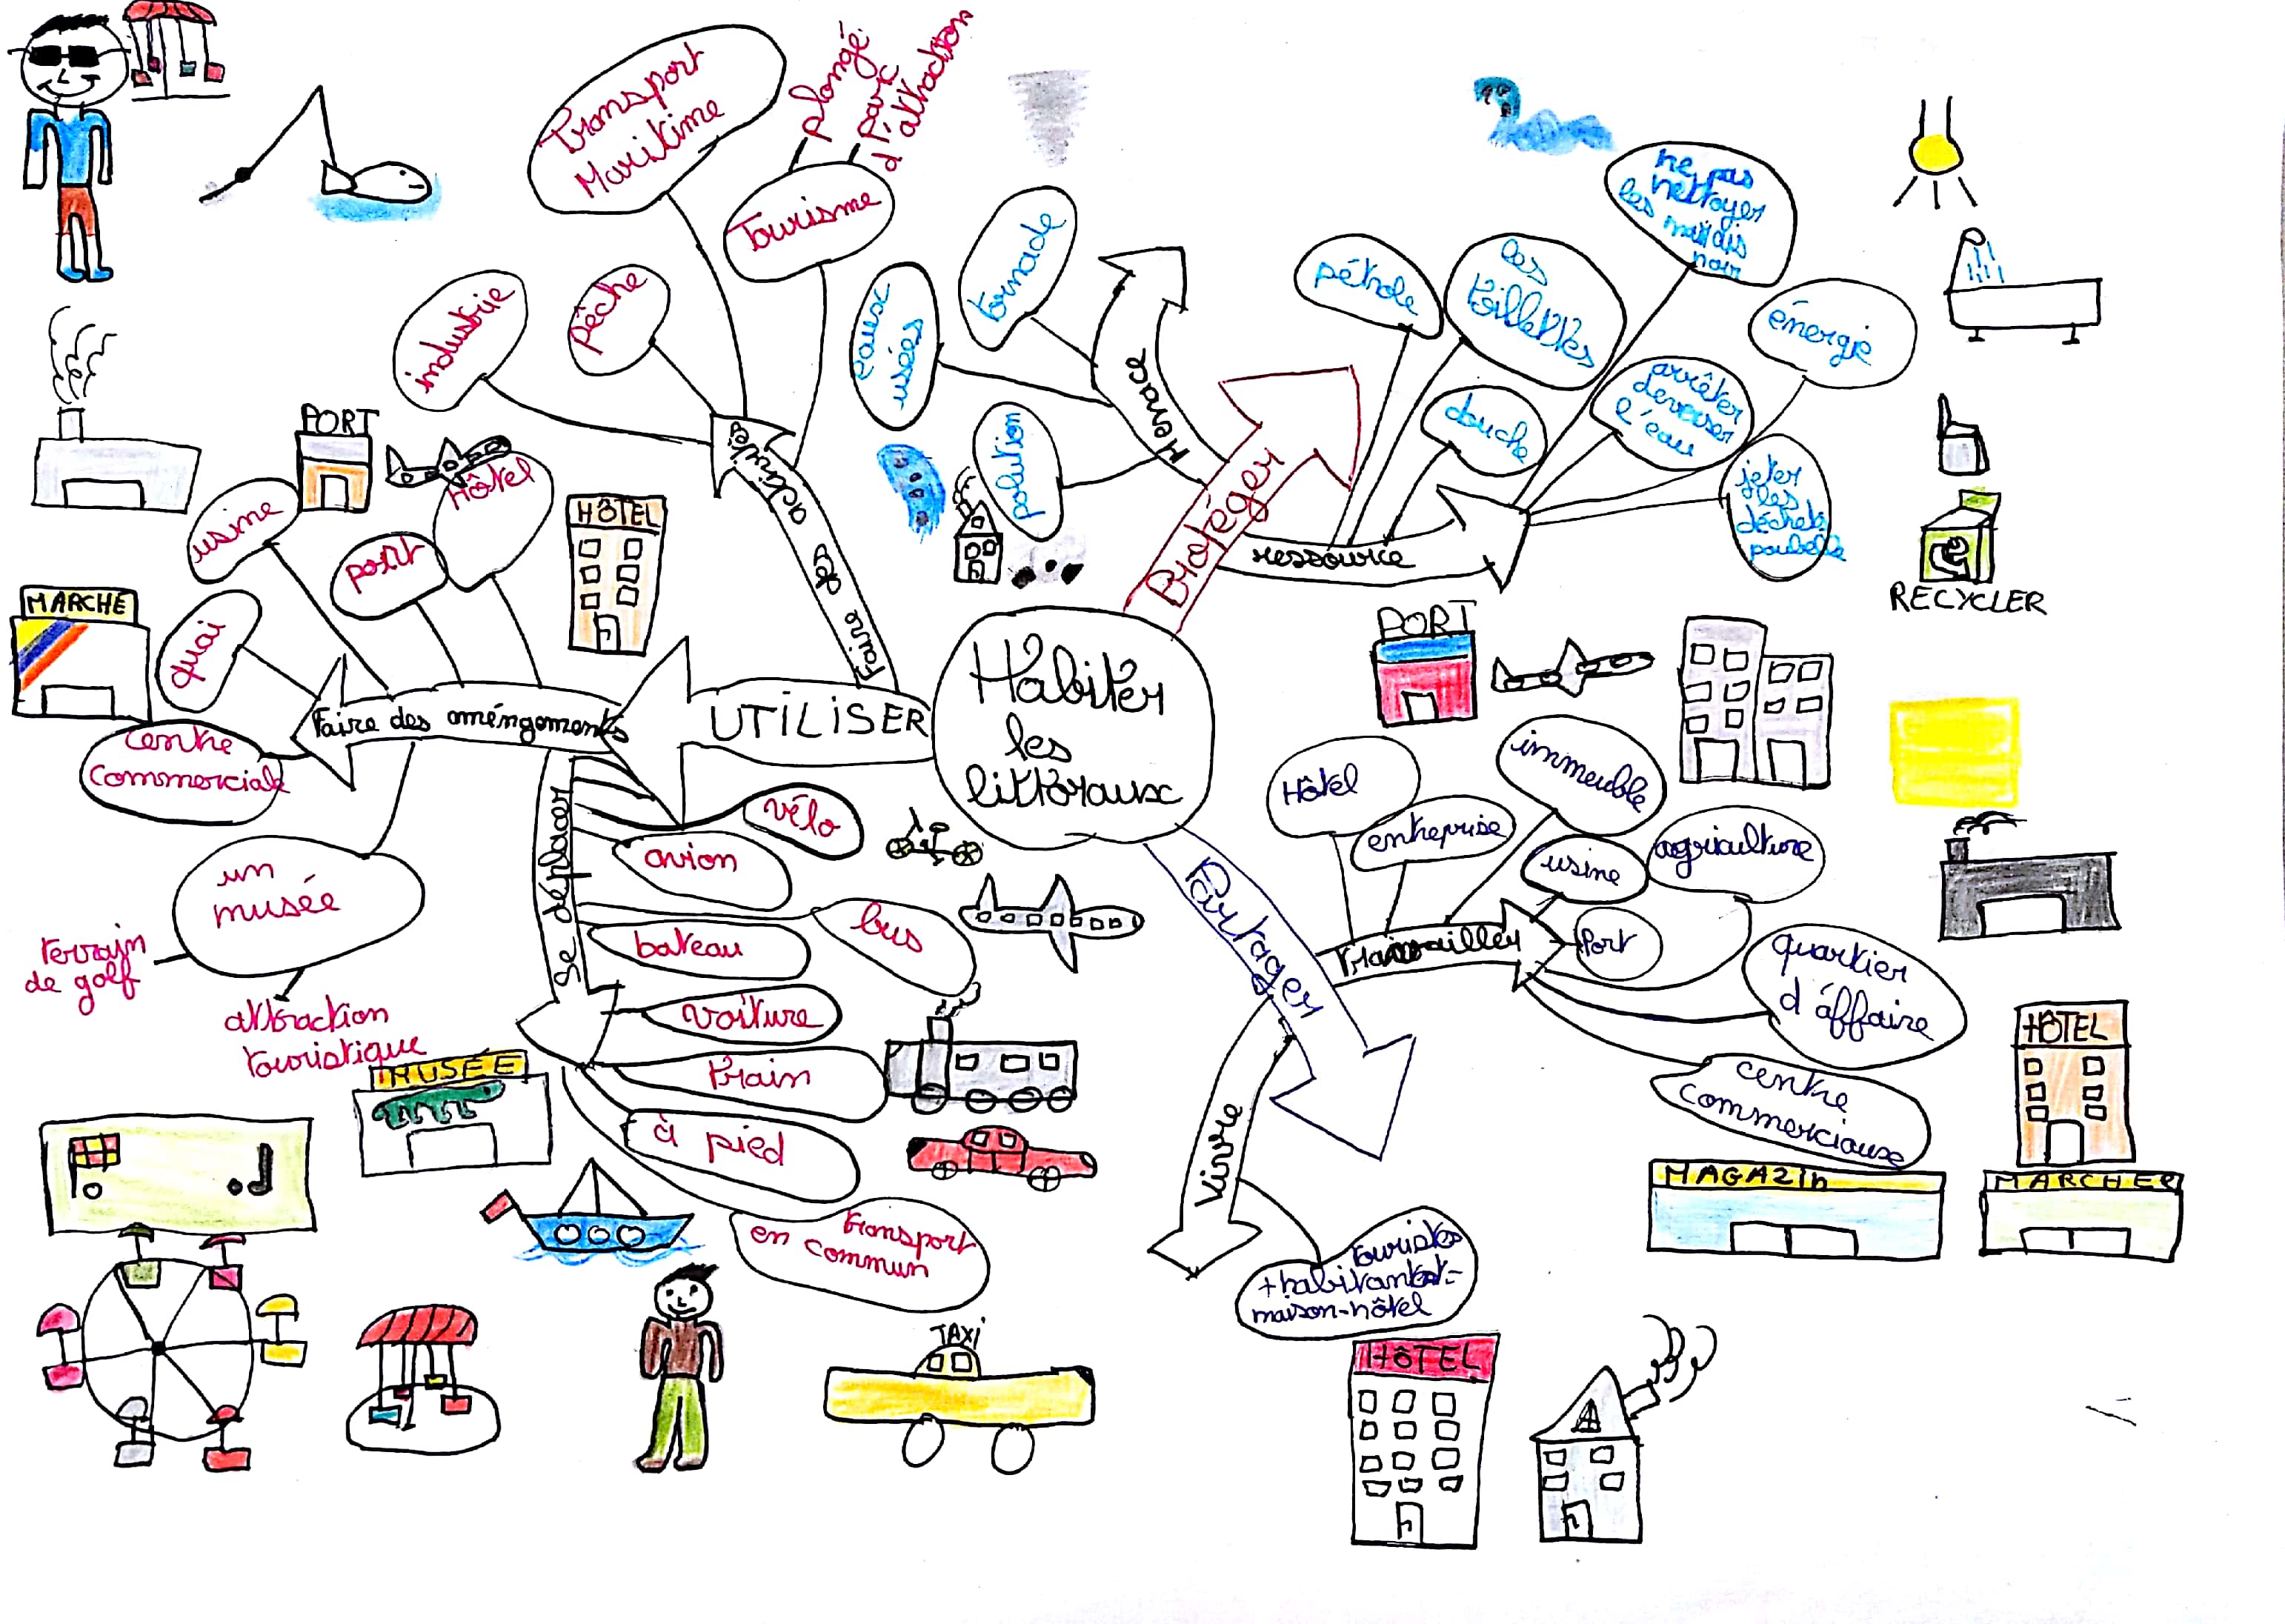 Habiter
les
littoraux
UTILISER
Faire des activités
Transport
Maritime
plongé
parc
d'attraction
Tourisme
pêche
industrie
Faire des améngements
Hôtel
port
usine
quai
centre
commerciale
un
musée
terrain
de golf
attraction
touristique
se déplacer
vélo
avion
bus
bateau
voiture
train
à pied
transport
en commun
Protéger
Menace
tornade
eaux
usées
polution
ressource
pétrole
les
toilettes
douche
ne pas
nettoyer
les
noir
énergie
arrêter
de verser
l'eau
jeter
les
déchets
poubelle
Partager
Travailler
Hôtel
entreprise
immeuble
usine
agriculture
Port
quartier
d'affaire
centre
commerciaux
Vivre
touristes
+habitants
maison-hôtel
PORT
HÔTEL
MARCHE
MUSÉE
TAXi
RECYCLER
PORT
HÔTEL
MAGAZIN
MARCHER
HÔTEL